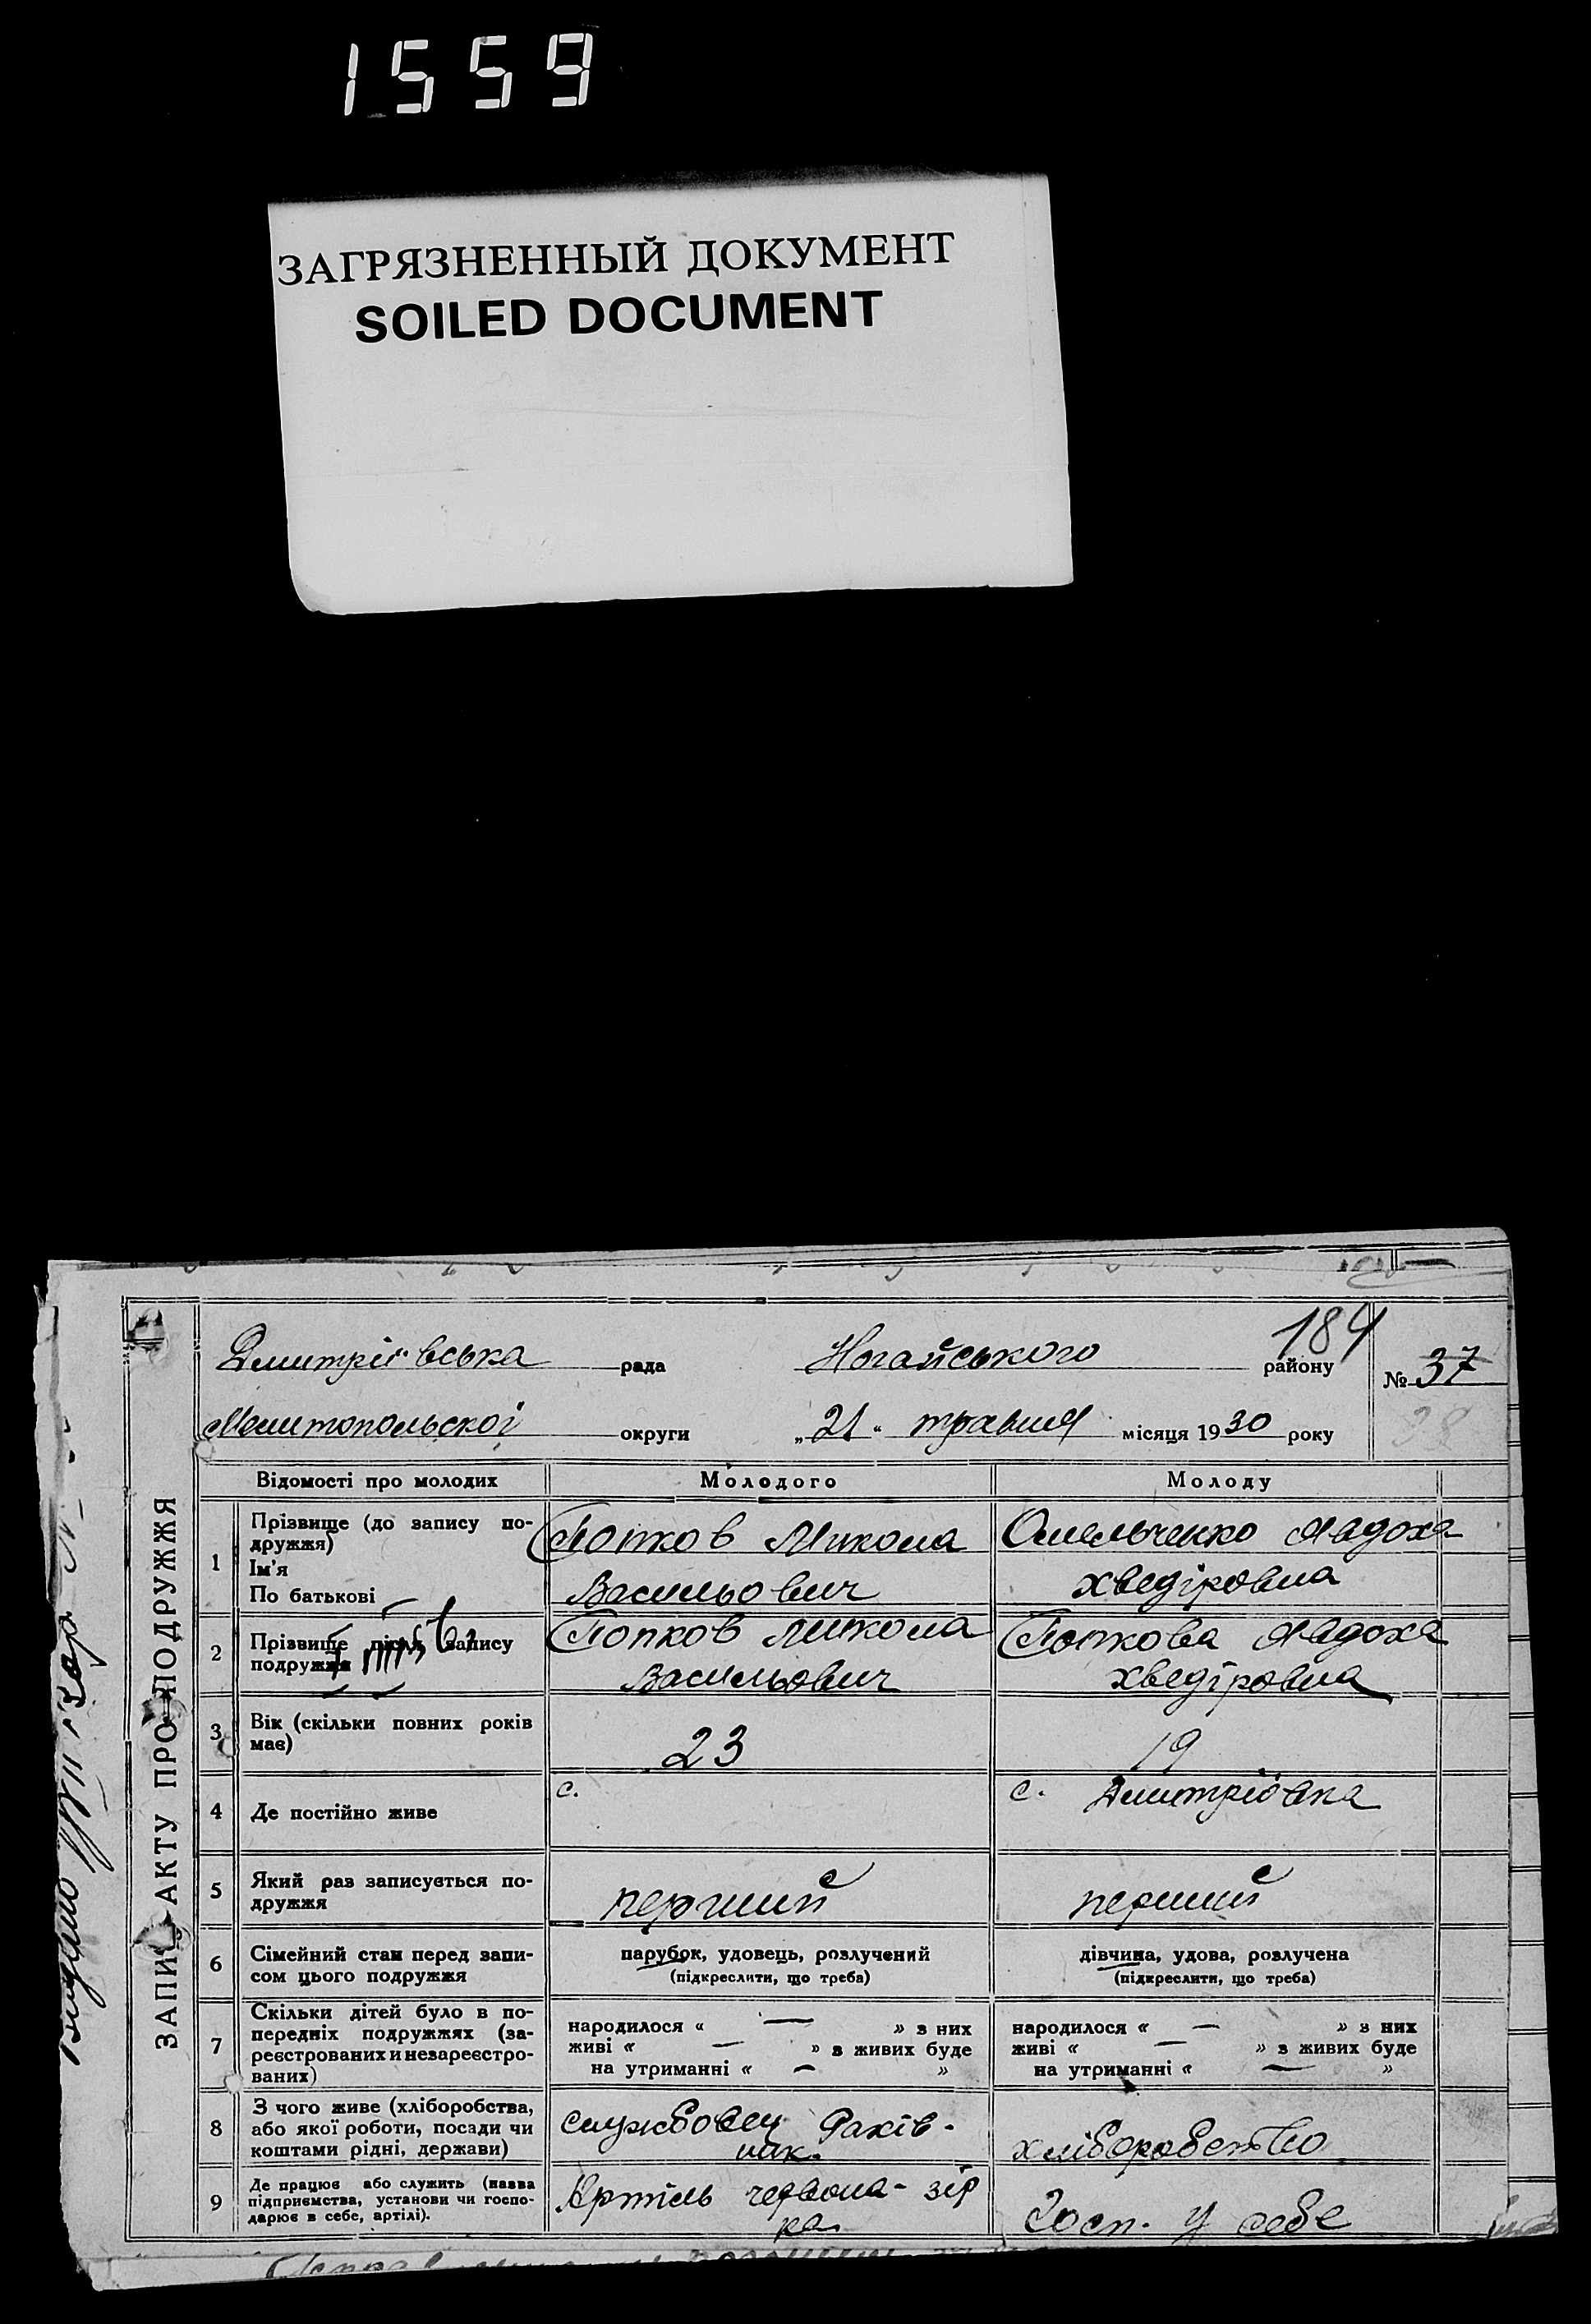 1559
ЗАГРЯЗНЕННЫЙ ДОКУМЕНТ
SOILED DOCUMENT
ЗАПИС АКТУ ПРО ПОДРУЖЖЯ
184
Дмитріївська рада Ногайського району № 37
Мелитопольскої округи „21“ травня місяця 1930 року
38
Відомості про молодих Молодого Молоду
1 Прізвище (до запису по-
дружжя)
Ім'я
По батькові
Попков Микола
Васильович
Омельченко Явдоха
Хведіровна
2 Прізвище після запису
подружжя
Попков Микола
Васильович
Попкова Явдоха
Хведіровна
3 Вік (скільки повних років
має)
23
19
4 Де постійно живе
с.
с. Дмитрівка
5 Який раз записується по-
дружжя
перший
перший
6 Сімейний стан перед запи-
сом цього подружжя
парубок, удовець, розлучений
(підкреслити, що треба)
дівчина, удова, розлучена
(підкреслити, що треба)
7 Скільки дітей було в по-
передніх подружжях (за-
реєстрованих и незареєстро-
ваних)
народилося « — » з них
живі « — » з живих буде
на утриманні « — »
народилося « — » з них
живі « — » з живих буде
на утриманні « — »
8 З чого живе (хліборобства,
або якої роботи, посади чи
коштами рідні, держави)
службовец Рахів-
ник.
хліборобство
9 Де працює або служить (назва
підприємства, установи чи госпо-
дарює в себе, артілі).
Артіль червона-зір
ка
Госп. у себе